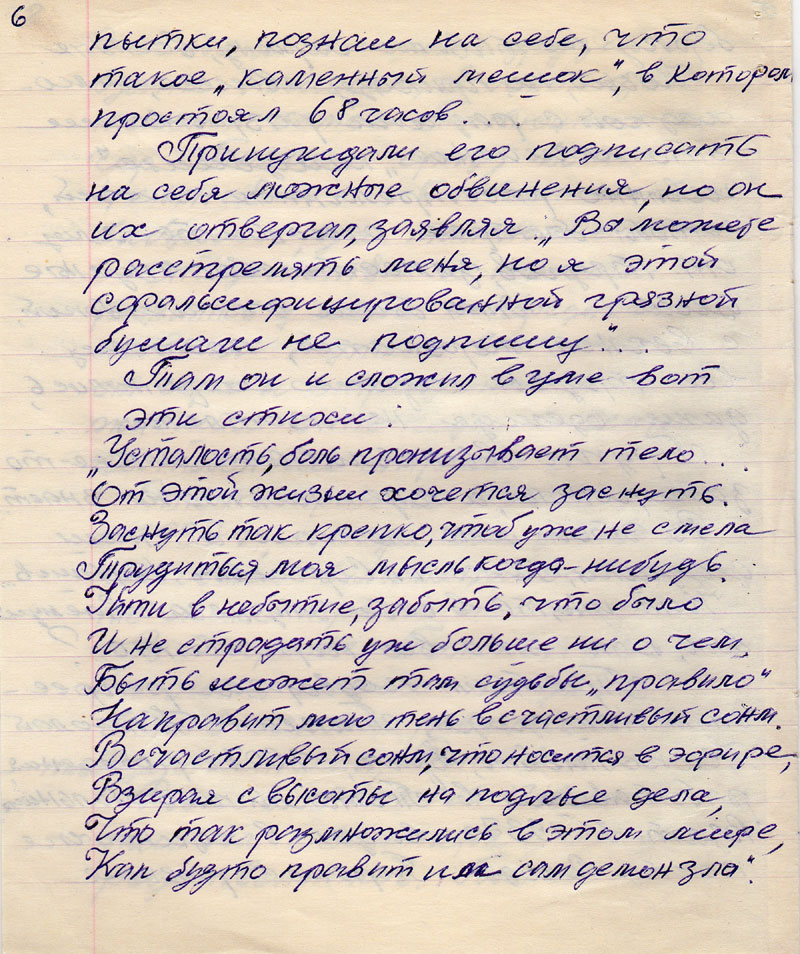 6
пытки, познал на себе, что
такое „каменный мешок“, в котором
простоял 68 часов.
Принуждали его подписать
на себя ложные обвинения, но он
их отвергал, заявляя „Вы можете
расстрелять меня, но я этой
сфальсифицированной грязной
бумаги не подпишу“...
Там он и сложил в уме вот
эти стихи:
„Усталость, боль пронизывает тело...
От этой жизни хочется заснуть.
Заснуть так крепко, чтоб уже не смела
Трудиться моя мысль когда-нибудь.
Уйти в небытие, забыть, что было
И не страдать уж больше ни о чем,
Быть может там судьбы „правило“
Направит мою тень в счастливый сонм.
В счастливый сонм, что носится в эфире,
Взирая с высоты на подлые дела,
Что так размножились в этом мире,
Как будто правит им сам демон зла“.